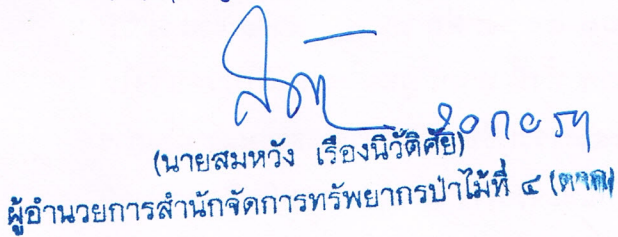 (นายสมหวัง เรืองนิวัติศัย)
ผู้อำนวยการสำนักจัดการทรัพยากรป่าไม้ที่ ๔ (ตาก)